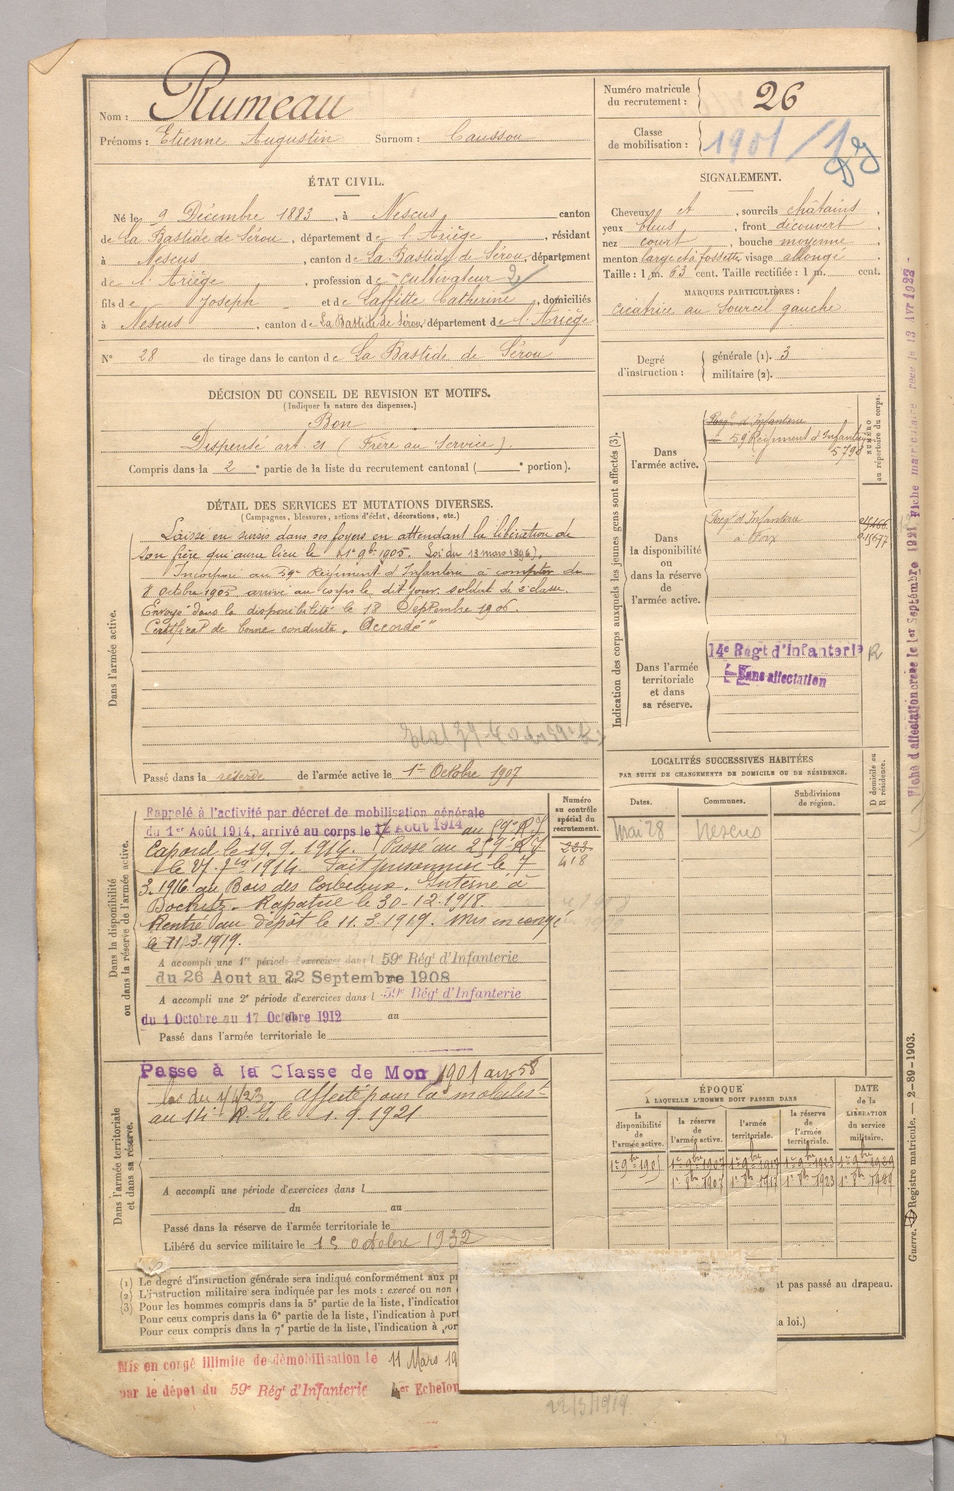 Nom : Rumeau
Prénoms : Etienne Augustin Surnom : Caussou
Numéro matricule du recrutement : 26
Classe de mobilisation : 1901
ÉTAT CIVIL.
Né le 9 Décembre 1883, à Nescus canton
de La Bastide de Sérou, département de l'Ariège, résidant
à Nescus, canton de La Bastide de Sérou, département
de l'Ariège, profession de cultivateur 2
fils de Joseph et de Laffitte Catherine, domiciliés
à Nescus, canton de La Bastide de Sérou, département de l'Ariège
N° 28 de tirage dans le canton de La Bastide de Sérou
SIGNALEMENT.
Cheveux et, sourcils châtains,
yeux bleus, front découvert,
nez court, bouche moyenne,
menton large et à fossette, visage allongé
Taille : 1 m. 63 cent. Taille rectifiée : 1 m. cent.
MARQUES PARTICULIÈRES :
cicatrice au sourcil gauche
Degré d'instruction : générale (1). 3
militaire (2).
DÉCISION DU CONSEIL DE REVISION ET MOTIFS.
(Indiquer la nature des dispenses.)
Bon
Dispensé art. 21 (Frère au Service).
Compris dans la 2e partie de la liste du recrutement cantonal ( e portion).
DÉTAIL DES SERVICES ET MUTATIONS DIVERSES.
(Campagnes, blessures, actions d'éclat, décorations, etc.)
Dans l'armée active.
Laissé en sursis dans ses foyers en attendant la libération de
son frère qui aura lieu le 1er 9bre 1905. Loi du 13 mars 1896),
Incorporé au 59e Régiment d'Infanterie à compter du
8 octobre 1905, arrivé au corps le dit jour, soldat de 2e classe.
Envoyé dans la disponibilité le 18 Septembre 1906.
Certificat de bonne conduite "Accordé"
Passé dans la réserve de l'armée active le 1er Octobre 1907
Indication des corps auxquels les jeunes gens sont affectés (3).
NUMÉRO au répertoire du corps.
Dans l'armée active.
Regt d'Infanterie
59 Régiment d'Infanterie
5790
Dans la disponibilité ou dans la réserve de l'armée active.
Regt d'Infanterie
à Foix
Dans l'armée territoriale et dans sa réserve.
14e Régt d'Infanterie R
Sans affectation
Dans la disponibilité ou dans la réserve de l'armée active.
Numéro au contrôle spécial du recrutement.
418
Rappelé à l'activité par décret de mobilisation générale
du 1er Août 1914, arrivé au corps le 12 Août 1914 au 59e R.I.
Caporal le 19.9.1914. Passé au 259 R.I.
le 27. 1914. Fait prisonnier le 7
3.1916 au Bois des Corbeaux. Interné à
Rapatrié le 30-12-1918.
Rentré au dépôt le 11.3.1919. Mis en congé
le 11.3.1919.
A accompli une 1re période d'exercices dans l 59e Régt d'Infanterie
du 26 Aout au 22 Septembre 1908
A accompli une 2e période d'exercices dans l 59e Régt d'Infanterie
du 1 Octobre au 17 Octobre 1912 au
Passé dans l'armée territoriale le
LOCALITÉS SUCCESSIVES HABITÉES
PAR SUITE DE CHANGEMENTS DE DOMICILE OU DE RÉSIDENCE.
Dates. Communes. Subdivisions de région. D domicile ou R résidence.
Mai 28 Nescus
Dans l'armée territoriale et dans sa réserve.
Passé à la Classe de Mob 1901 art 58
loi du 1/4/23 affecté pour la mobilison
au 14e R.I. le 1.9.1921
A accompli une période d'exercices dans l
du au
Passé dans la réserve de l'armée territoriale le
Libéré du service militaire le 15 octobre 1932
ÉPOQUE
À LAQUELLE L'HOMME DOIT PASSER DANS
DATE de la LIBÉRATION du service militaire.
la disponibilité de l'armée active. la réserve de l'armée active. l'armée territoriale. la réserve de l'armée territoriale.
(1) Le degré d'instruction générale sera indiqué conformément aux
(2) L'instruction militaire sera indiquée par les mots : exercé ou non
(3) Pour les hommes compris dans la 5e partie de la liste, l'indication
nt pas passé au drapeau.
Pour ceux compris dans la 6e partie de la liste, l'indication à
Pour ceux compris dans la 7e partie de la liste, l'indication à
a loi.)
Mis en congé illimité de démobilisation le 11 Mars 19
par le dépôt du 59e Régt d'Infanterie 4er Echelon
22/3/1919
Fiche d'affectation créée le 1er Septembre 1921 Fiche matriculaire reçe le 13 Avr 1922
Guerre. Registre matricule. — 2-89-1903.